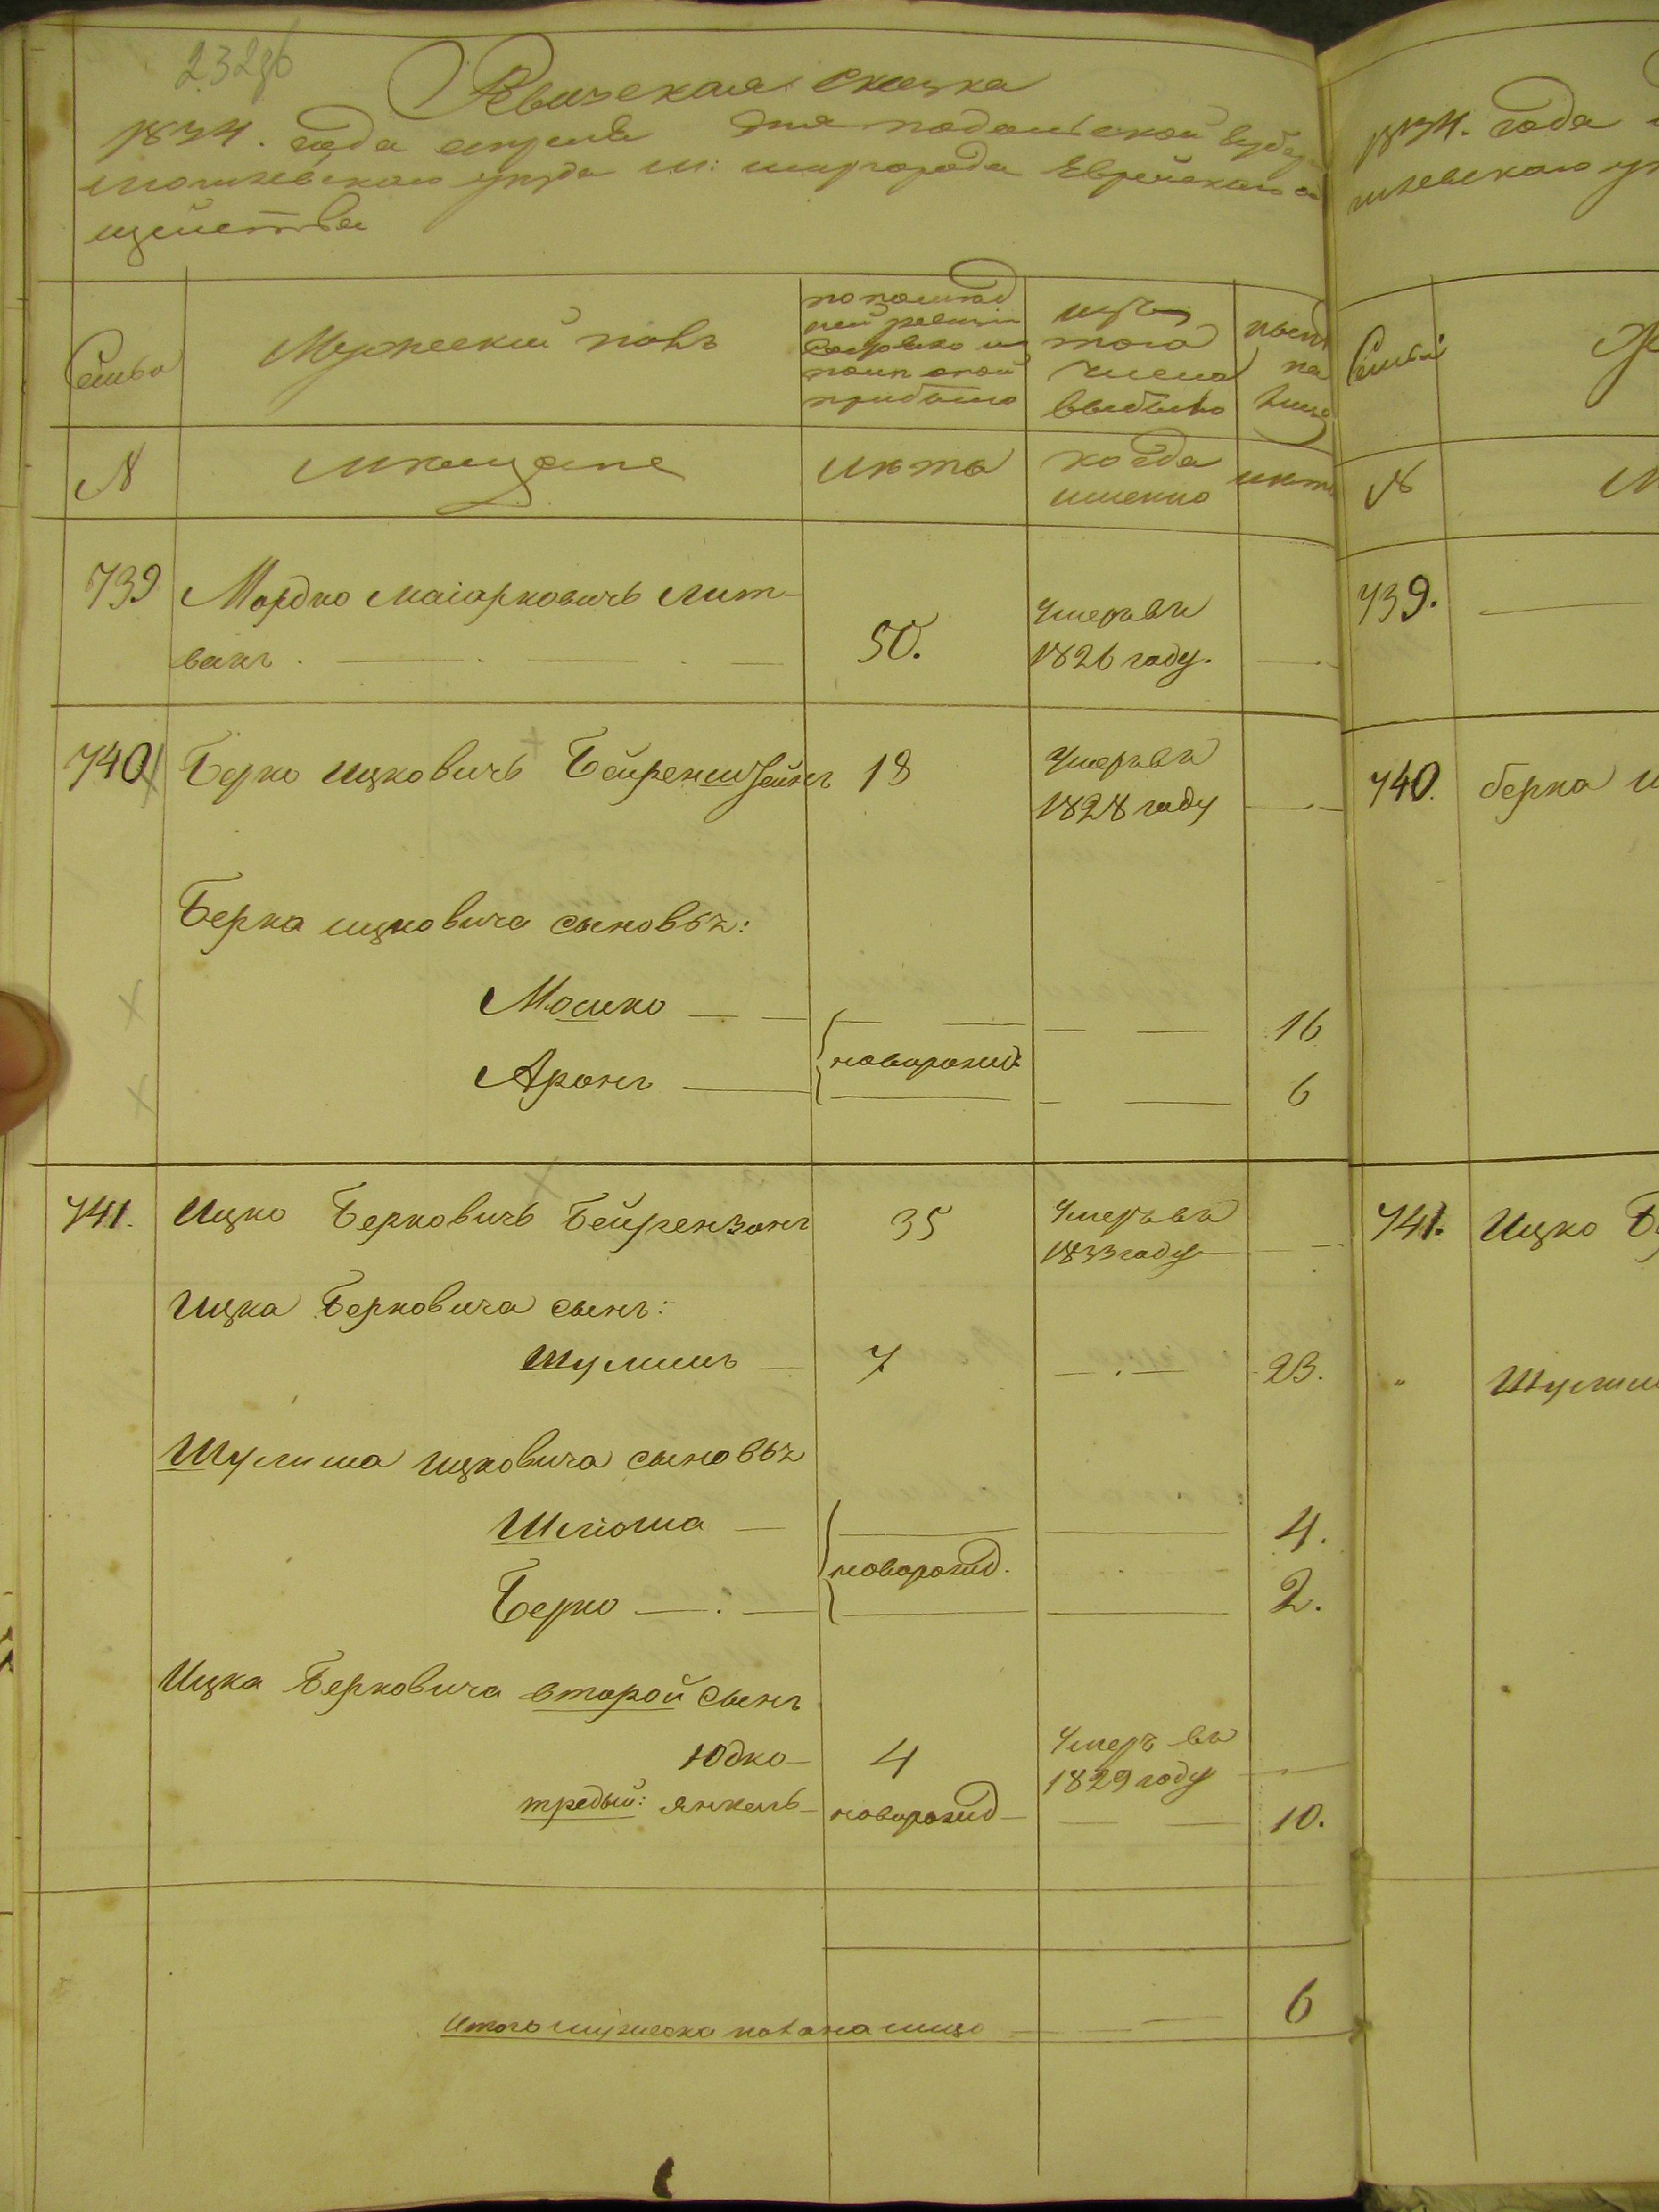 232 об
Ревизская сказка
1834. года апреля дня подольской губер
могилевского уезда м: шаргорода Еврейского о
щества
Семьи
Мужеский полъ
по послед
ней ревизіи
состояло и
после оной
прибыло
изъ
того
числа
выбыло
ныне
на
лицо
N
мещане
лета
когда
именно
лета
739
Мордко маіорковичъ лит
вакъ
50.
Умеръ въ
1826 году.
740
Берко ицковичъ Бейренштейнъ
18
Умеръ въ
1828 году
Берка ицковича сыновья:
Мошко
16
новорожд:
Аронъ
6
741.
Ицко Берковичъ Бейрензонъ
35
Умеръ въ
1833 году
Ицка Берковича сынъ:
Шулимъ
7
23.
Шулима ицковича сыновья
Шліома
4.
новорожд.
Берко
2.
Ицка Берковича второй сынъ
Юдко
4
Умеръ въ
1829 году
третьій: янкель
новорожд
10.
Итого мужеска пола на лицо
6
1834. года
гилевского уе
Семьи
N
М
739.
740.
берка и
741.
Ицко Б
"
Шулим